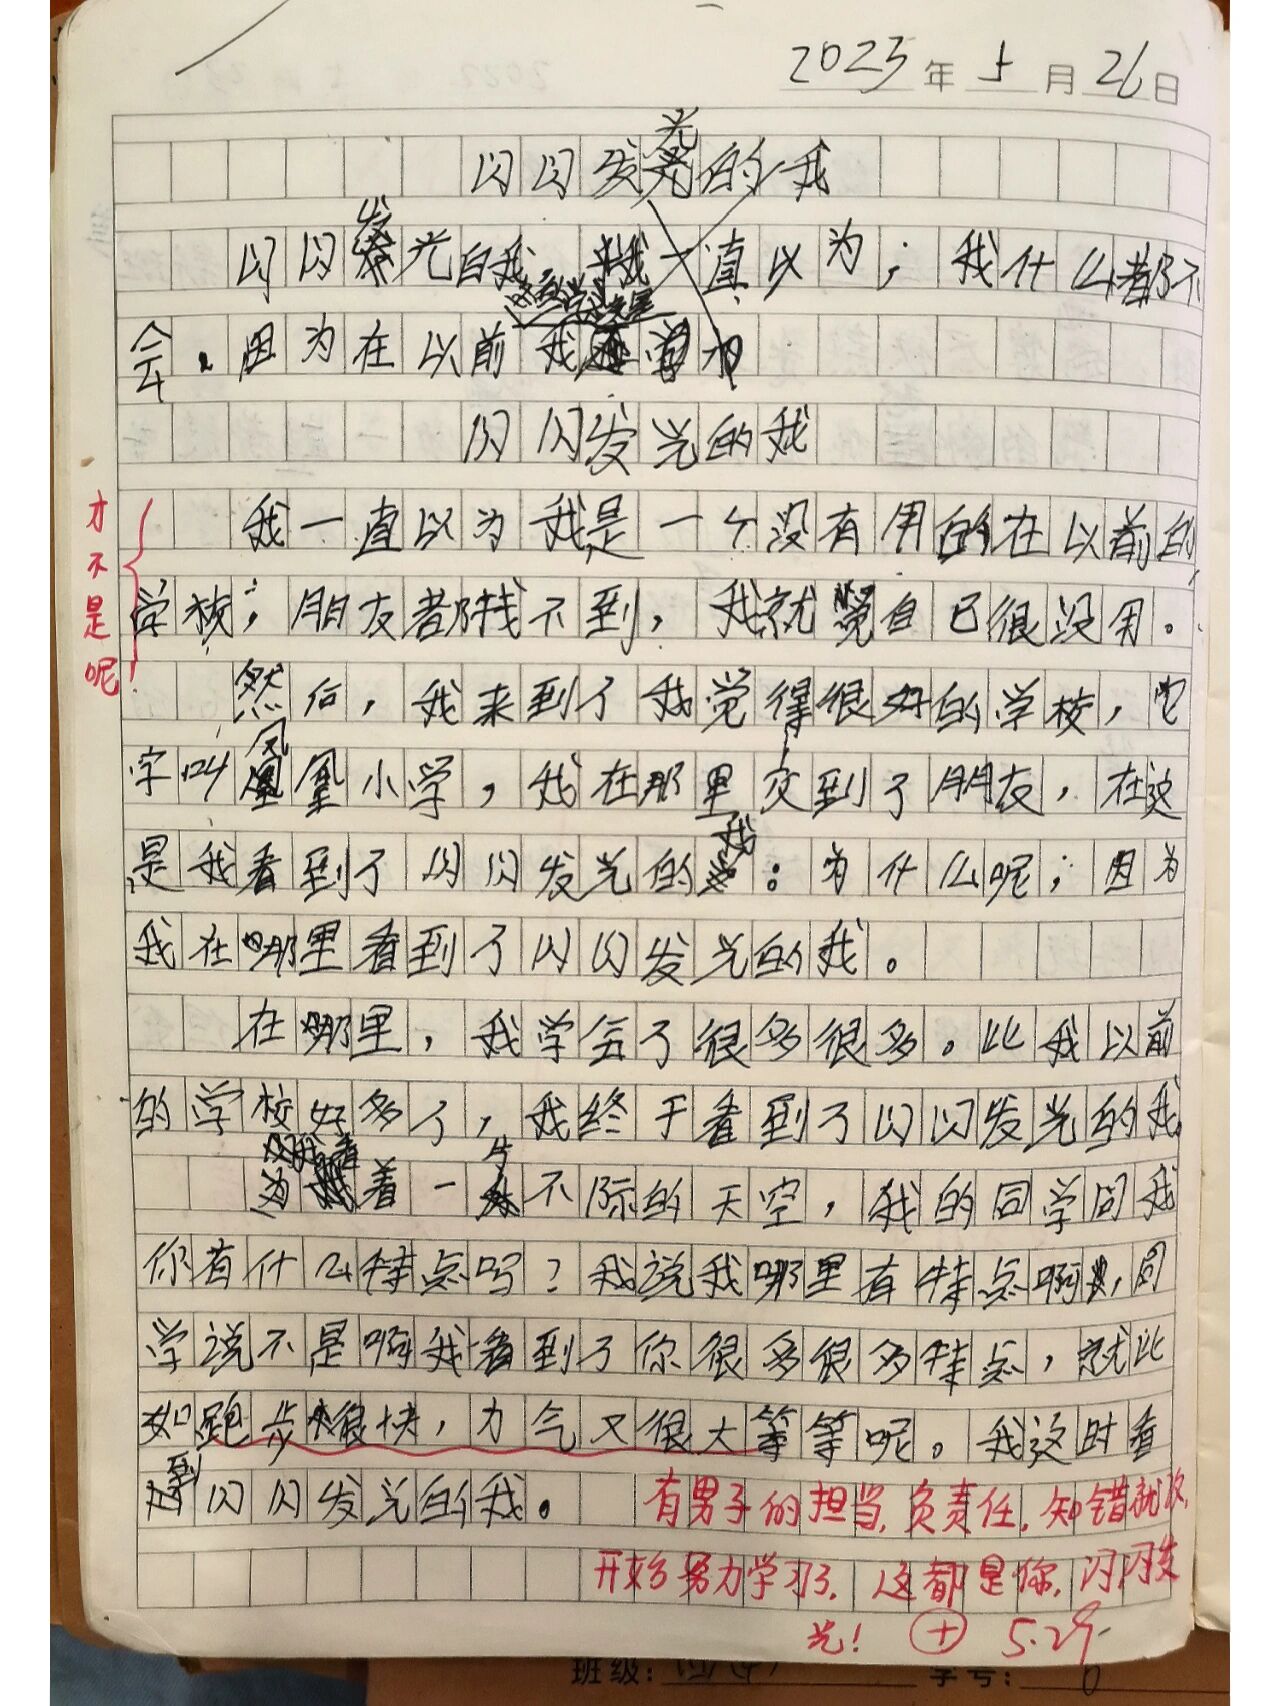 2023年5月26日
闪闪发光的我
闪闪发光白我，我一直以为；我什么都不
会。因为在以前我
闪闪发光的我
我一直以为我是一个没有用的在以前的
学校；朋友都找不到，我就觉自已很没用。
才不是呢！
然后，我来到了我觉得很好的学校，它
字叫凤凰小学，我在那里交到了朋友，在这
是我看到了闪闪发光的我：为什么呢；因为
我在哪里看到了闪闪发光的我。
在哪里，我学会了很多很多。比我以前
的学校好多了，我终于看到了闪闪发光的我
着一片不际的天空，我的同学问我
你有什么特点吗？我说我哪里有特点啊，同
学说不是啊我看到了你很多很多特点，就比
如跑步很快，力气又很大等等呢。我这时看
到闪闪发光的我。
有男子的担当，负责任，知错就改，
开始努力学习了，这都是你，闪闪发
光！
5.29
班级：
学号：